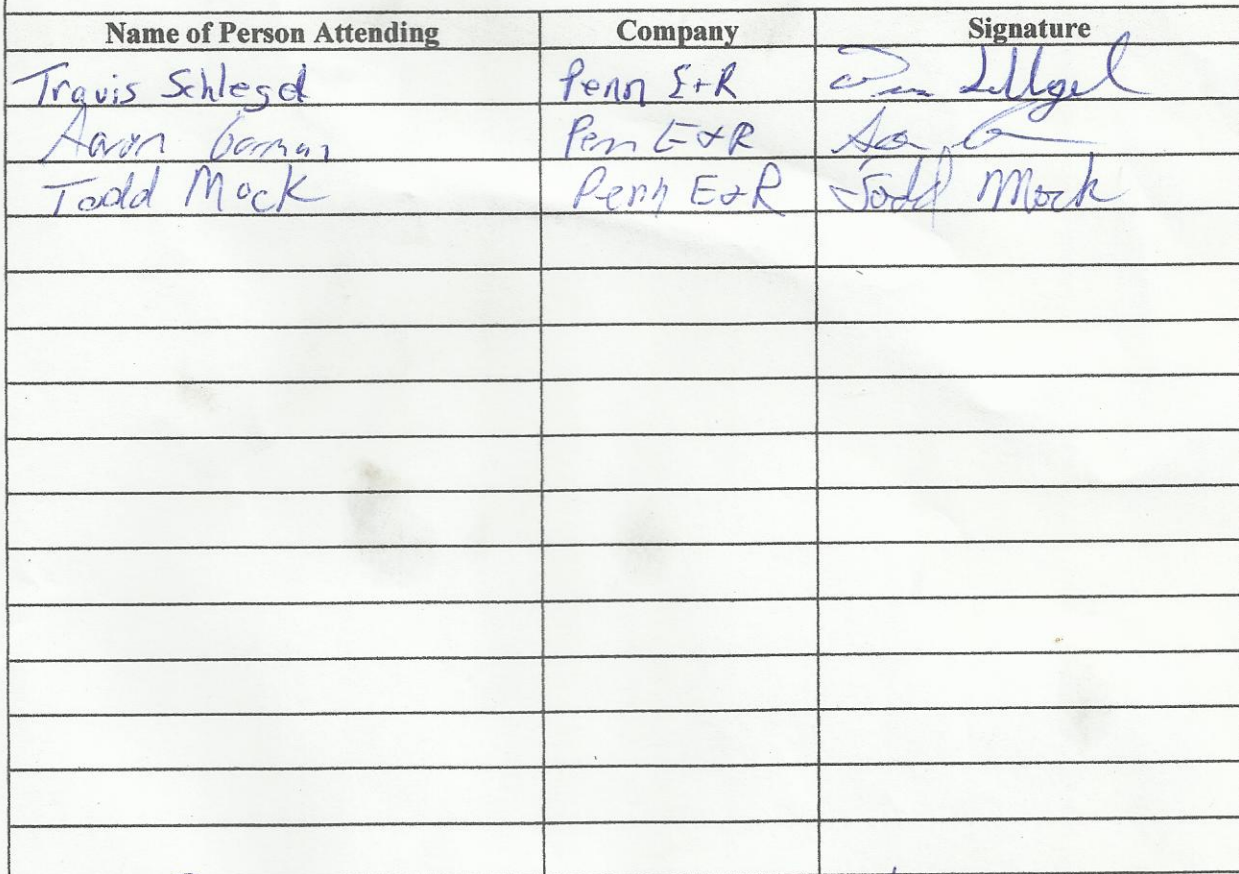 Name of Person Attending Company Signature
Travis Schlegel Penn E+R
Aaron Garman Penn E&R
Todd Mock Penn E&R Todd Mock